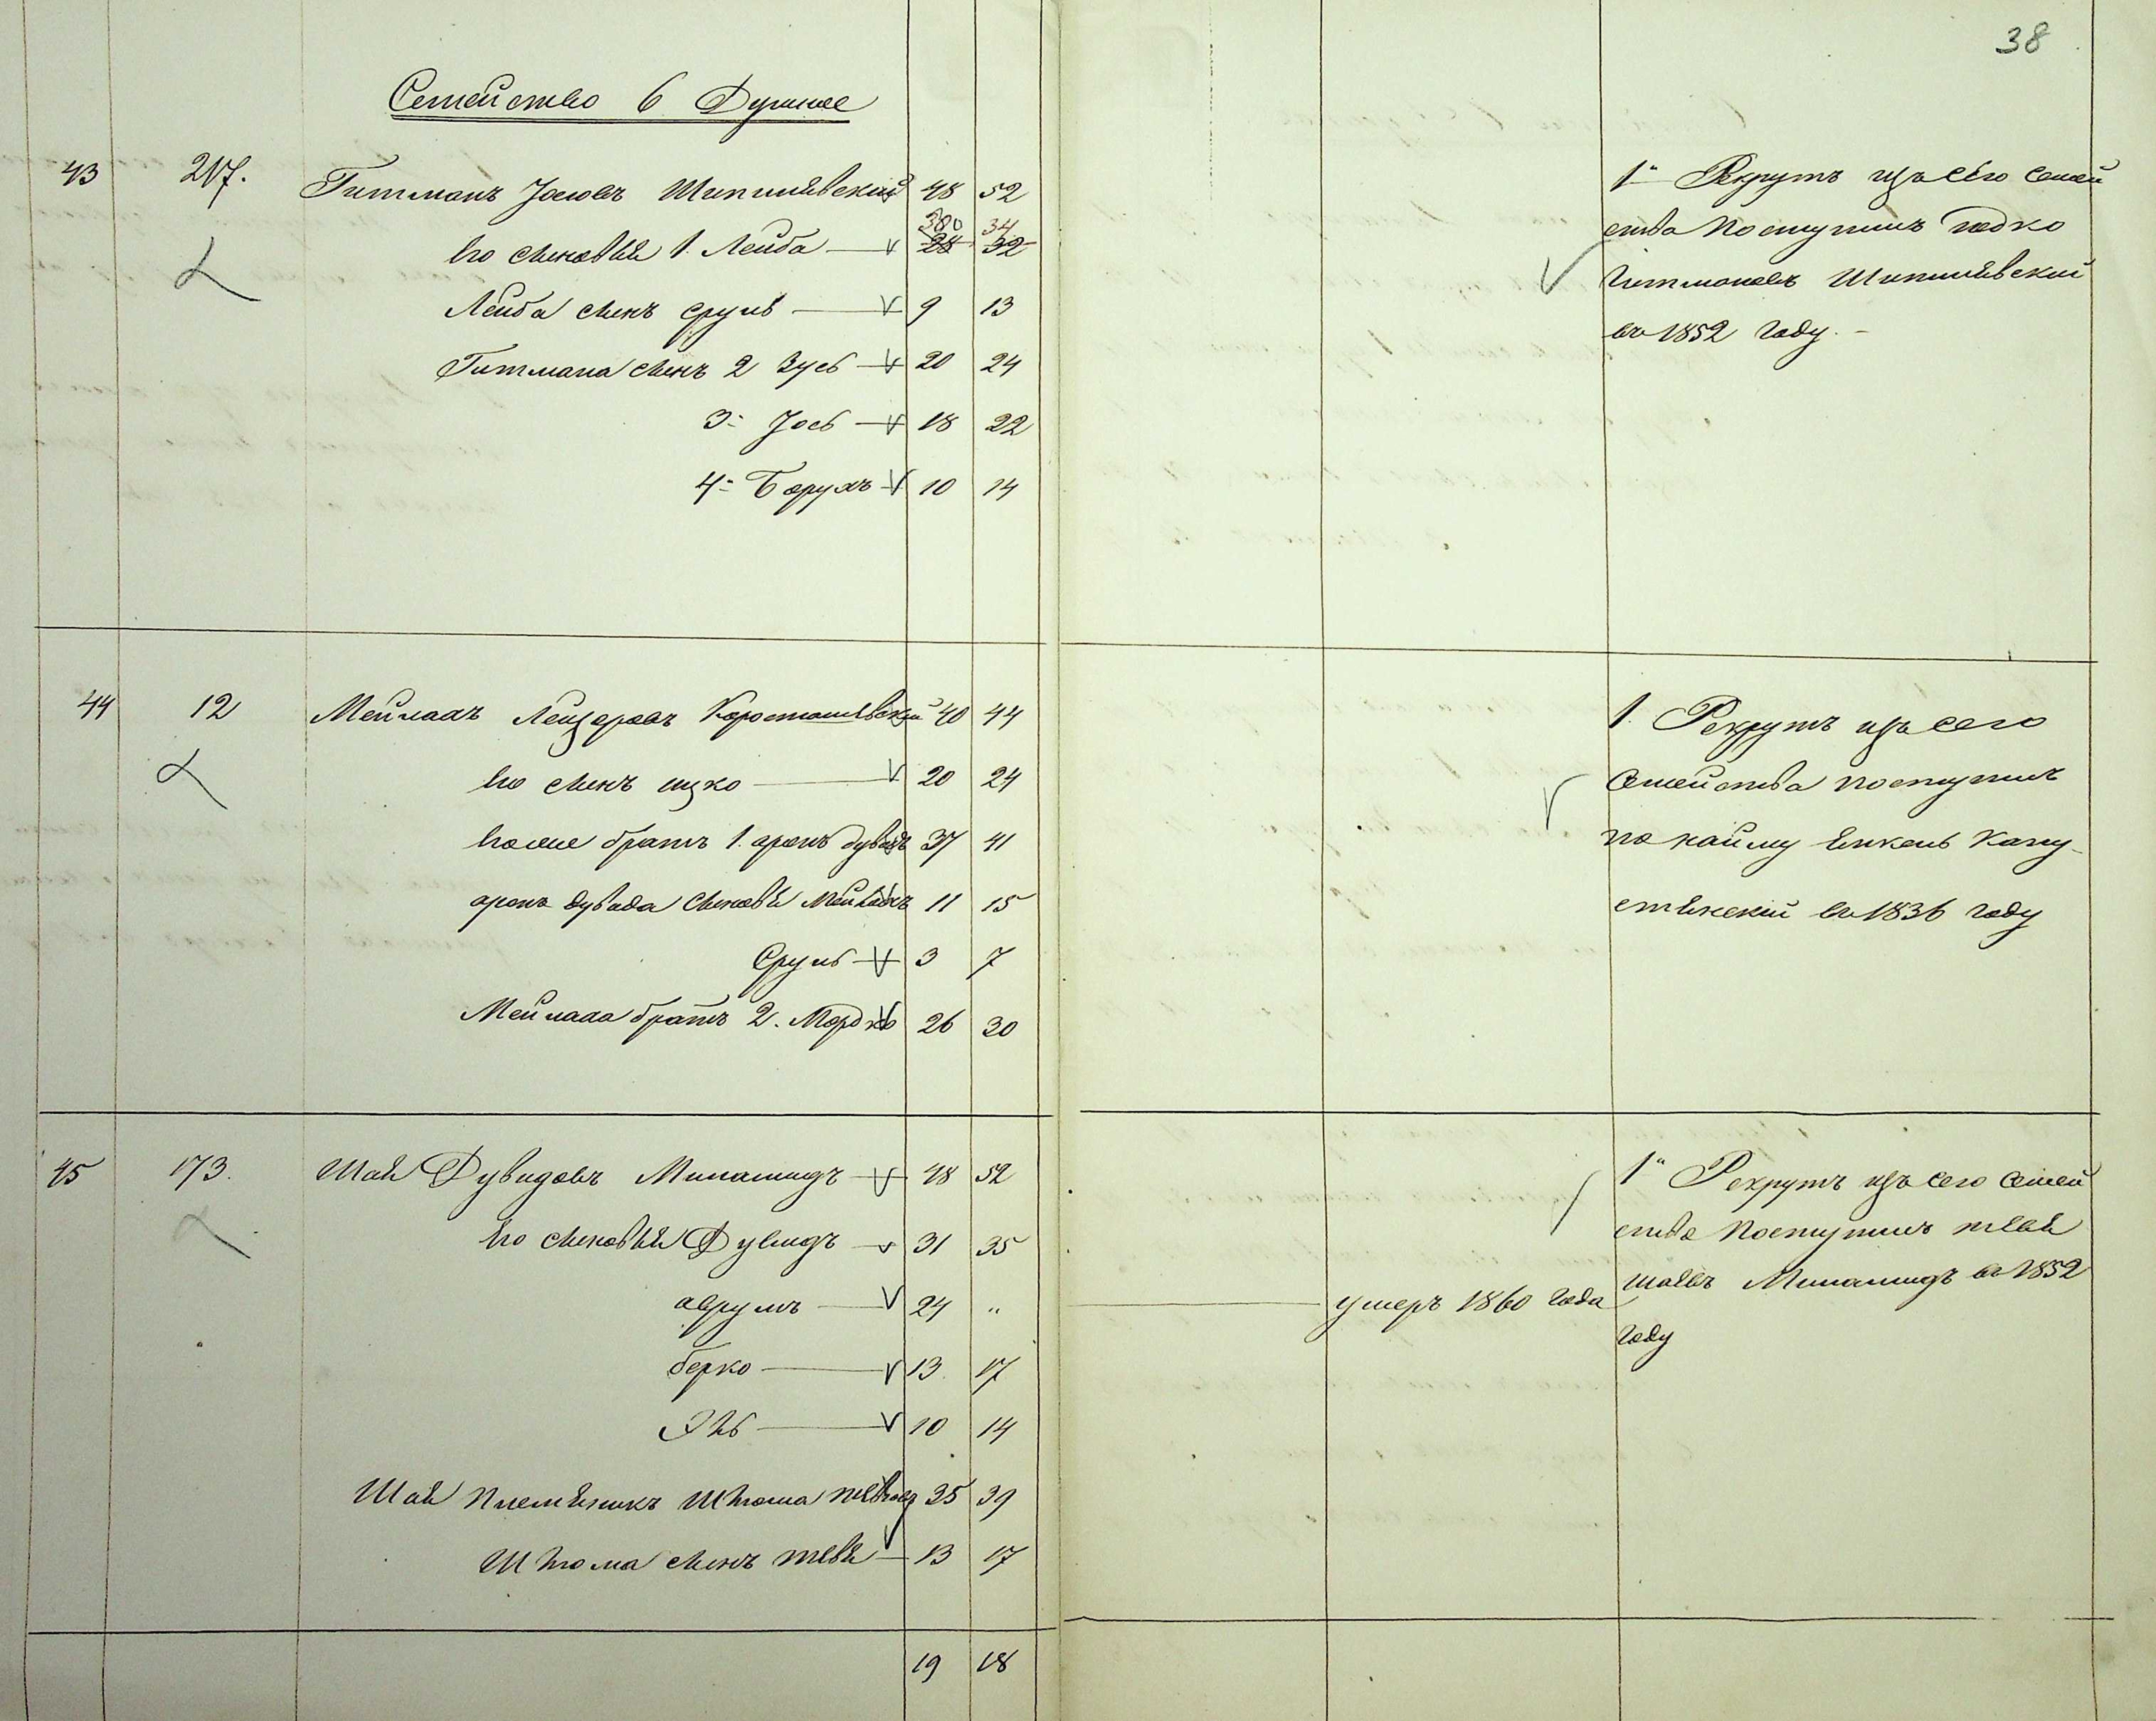 38
Семейство 6 Душное
43 217. Гитманъ Іосіовъ Шипилѣвскій 48 52
его сыновья 1. Лейба 28 32 30 34
Лейба сынъ сруль 9 13
Гитмана сынъ 2 Зусь 20 24
3- Іось 18 22
4- Борухъ 10 14
1й Рекрутъ изъ сего семей
ства поступилъ
Гитмановъ Шипилѣвскій
въ 1852 году. -
44 12 Мейлахъ Лейзеровъ Коростышѣвскій 40 44
его сынъ ицко 20 24
братъ 1. аронъ дувидъ 37 41
аронъ дувида сыновья Мейлахъ 11 15
Сруль 3 7
Мейлаха братъ 2. Мордко 26 30
1. Рекрутъ изъ сего
Семейства поступилъ
по найму Енкель Капу-
стѣнский въ 1836 году
45 173. Шая Дувидовъ 48 52
его сыновья Дувидъ 31 35
аврумъ 24 " умеръ 1860 года
берко 13 17
10 14
Шаи племѣникъ Шлома 35 39
Шлома сынъ тевя 13 17
1й Рекрутъ изъ сего семей
ства поступилъ тевя
шаевъ въ 1852
году
19 18